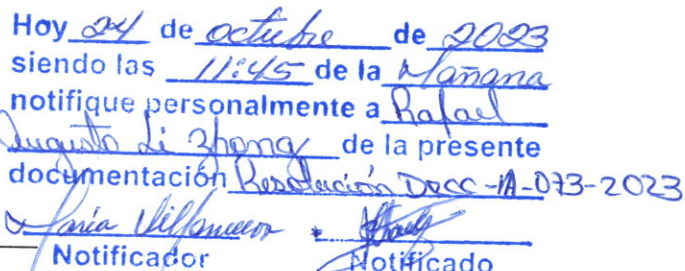 Hoy 24 de octubre de 2023
siendo las 11:45 de la Mañana
notifique personalmente a Rafael
Augusto Li Zhong de la presente
documentación Resolución DRCC-IA-073-2023
María Villanueva
Notificador Notificado